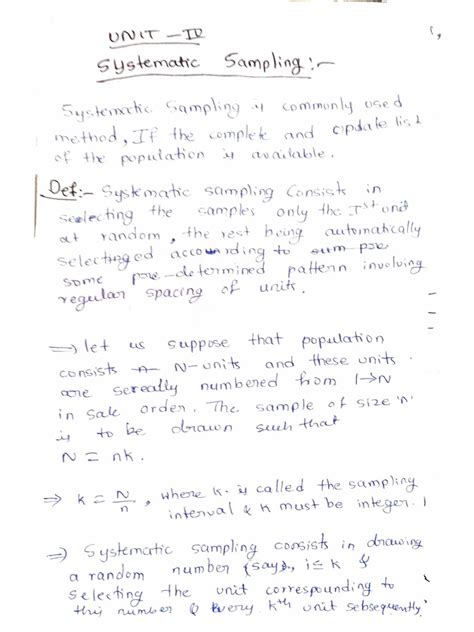 UNIT - IV
Systematic Sampling :-
Systematic Sampling is commonly used
method, If the complete and Update list
of the population is available.
Def:- Systematic sampling Consists in
selecting the samples only the Ist unit
at random, the rest being automatically
selectinged according to
some pre-determined pattern involving
regular spacing of units.
⇒ let us suppose that population
consists N-units and these units
are sereally numbered from 1→N
in order. The sample of size 'n'
is to be drawn such that
N = nk.
⇒ k = N/n, where k is called the sampling
interval & k must be integer.
⇒ Systematic sampling consists in drawing
a random number (say), i ≤ k &
selecting the unit corresponding to
this number & every kth unit sebsequently.